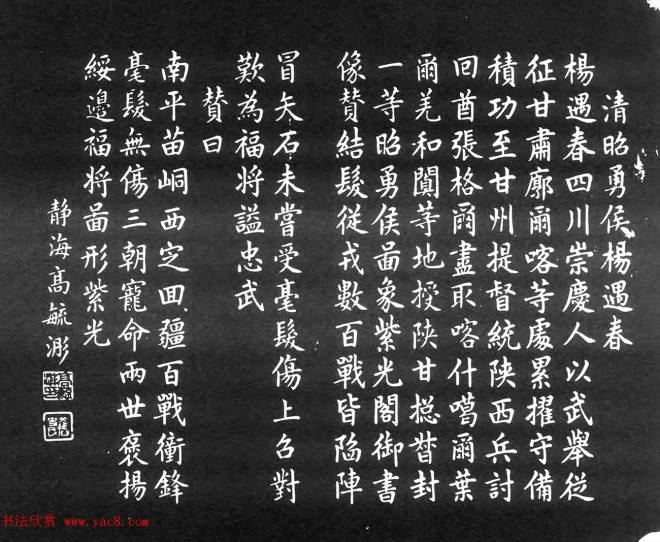 清昭勇侯楊遇春
楊遇春四川崇慶人以武舉從
征甘肅廓爾喀等處累擢守備
積功至甘州提督統陝西兵討
回酋張格爾盡取喀什噶爾葉
爾羌和闐等地授陝甘揔督封
一等昭勇侯啚象紫光閣御書
像贊結髮從戎數百戰皆陷陣
冒矢石未嘗受毫髮傷上召對
歎為福將謚忠武
贊曰
南平苗峒西定回疆百戰衝鋒
毫髮無傷三朝寵命兩世褒揚
綏邊福將啚形紫光
静海高毓浵
书法欣赏 www.yac8.com